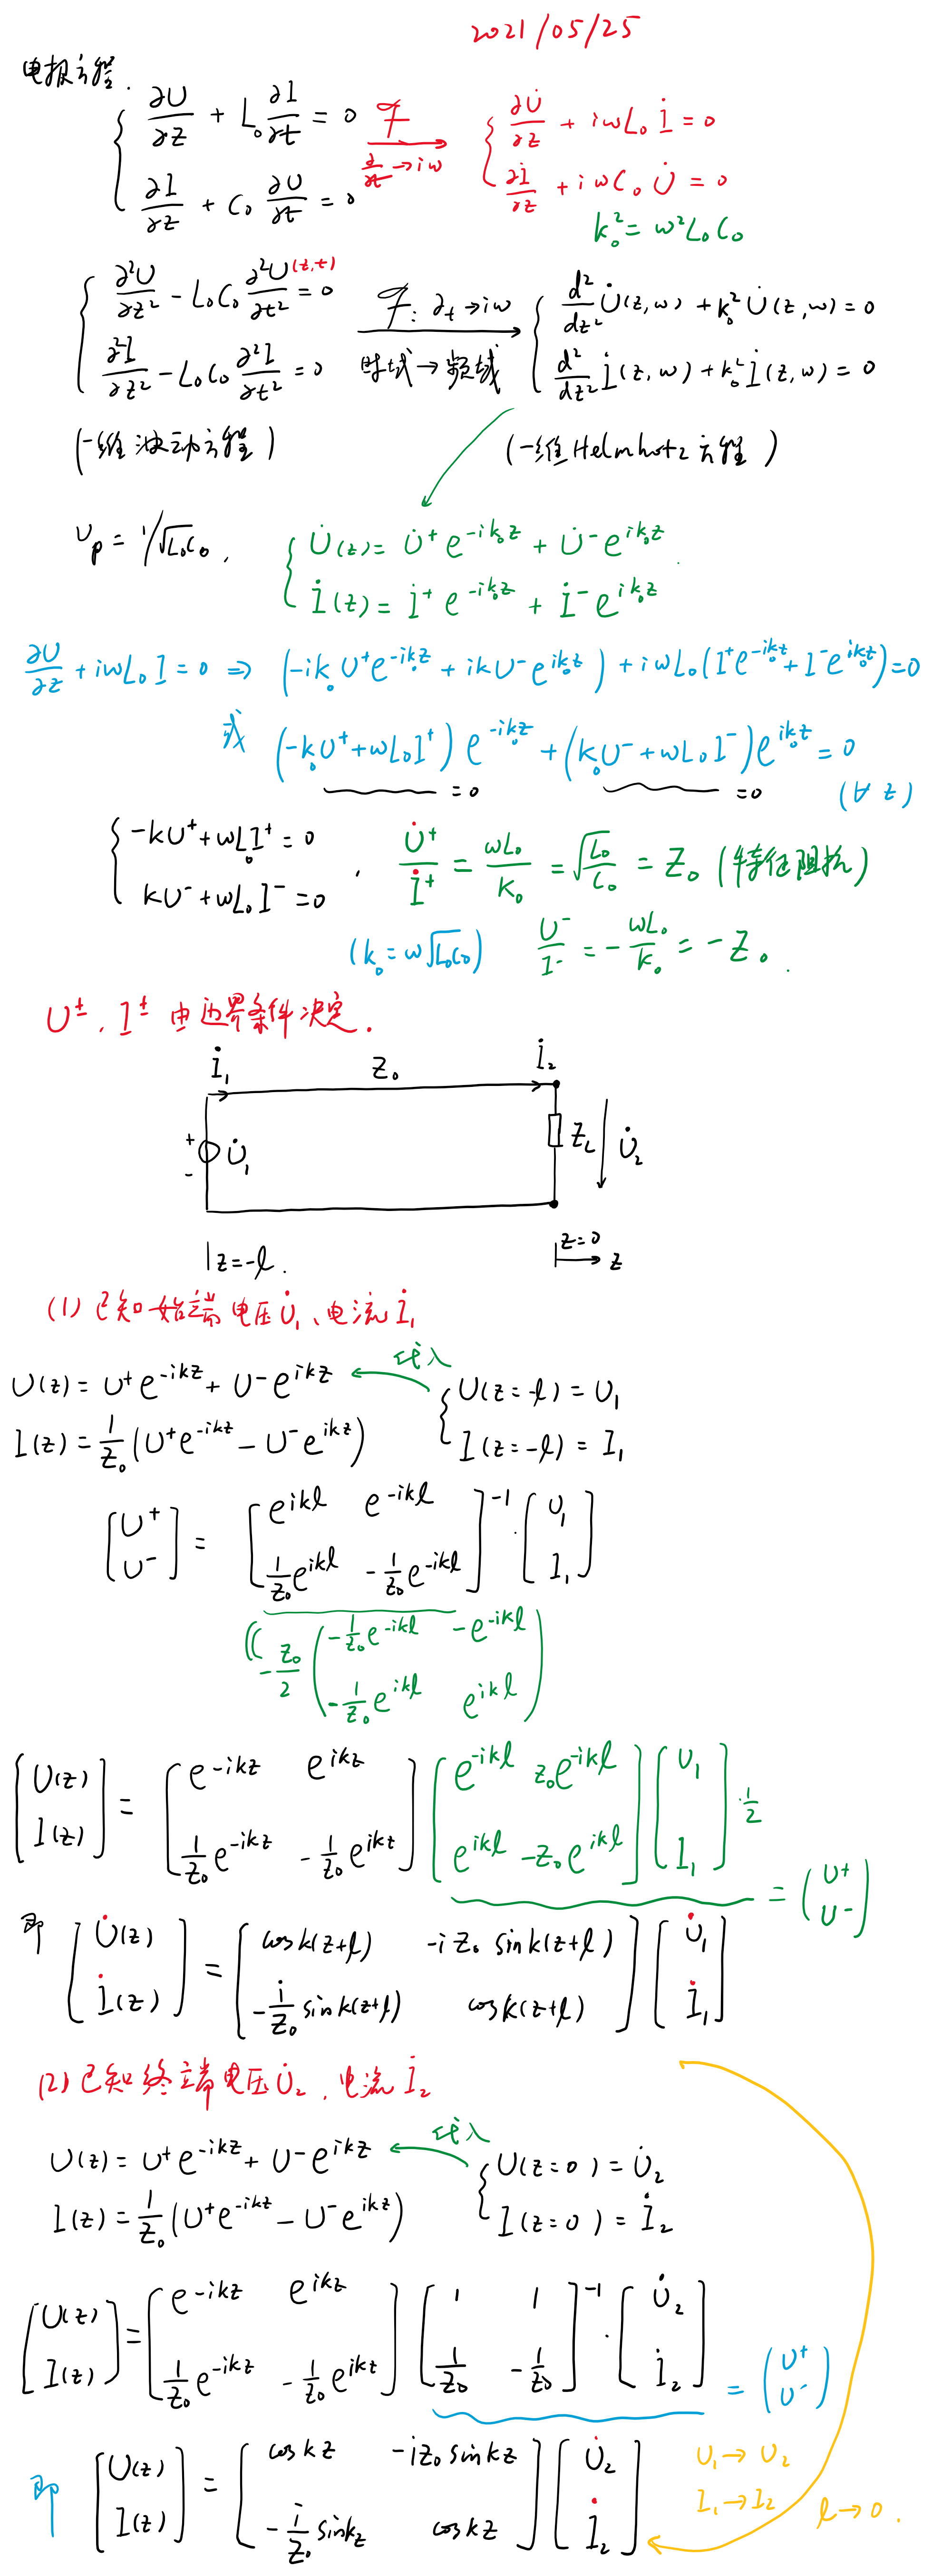 2021/05/25
电报方程.
{ ∂U/∂z + L₀ ∂I/∂t = 0 ℱ ∂/∂t→iω { ∂U̇/∂z + iωL₀ İ = 0
{ ∂I/∂z + C₀ ∂U/∂t = 0 { ∂İ/∂z + iωC₀ U̇ = 0
k₀² = ω²L₀C₀
{ ∂²U/∂z² - L₀C₀ ∂²U(z,t)/∂t² = 0 ℱ: ∂t→iω { d²/dz² U̇(z,ω) + k₀² U̇(z,ω) = 0
{ ∂²I/∂z² - L₀C₀ ∂²I/∂t² = 0 时域→频域 { d²/dz² İ(z,ω) + k₀² İ(z,ω) = 0
(一维波动方程) (一维Helmhotz方程)
υp = 1/√L₀C₀ , { U̇(z) = U̇⁺e^{-ik₀z} + U̇⁻e^{ik₀z}
{ İ(z) = İ⁺e^{-ik₀z} + İ⁻e^{ik₀z}
∂U/∂z + iωL₀I = 0 ⇒ (-ik₀U⁺e^{-ik₀z} + ikU⁻e^{ik₀z}) + iωL₀(I⁺e^{-ik₀z} + I⁻e^{ik₀z}) = 0
或 (-k₀U⁺ + ωL₀I⁺)e^{-ik₀z} + (k₀U⁻ + ωL₀I⁻)e^{ik₀z} = 0
=0 =0 (∀ z)
{ -kU⁺ + ωL₀I⁺ = 0 , U̇⁺/İ⁺ = ωL₀/K₀ = √(L₀/C₀) = Z₀ (特征阻抗)
{ kU⁻ + ωL₀I⁻ = 0
(k₀ = ω√L₀C₀) U⁻/I⁻ = -ωL₀/K₀ = -Z₀.
U±, I± 由边界条件决定.
İ₁ Z₀ İ₂
+ - U̇₁ Z_L U̇₂
z=-l. z=0 z
(1) 已知始端电压U̇₁、电流İ₁
代入
U(z) = U⁺e^{-ikz} + U⁻e^{ikz} { U(z=-l) = U₁
I(z) = 1/Z₀ (U⁺e^{-ikz} - U⁻e^{ikz}) { I(z=-l) = I₁
[U⁺; U⁻] = [e^{ikl} e^{-ikl}; 1/Z₀ e^{ikl} -1/Z₀ e^{-ikl}]^{-1} · [U₁; I₁]
-Z₀/2 (-1/Z₀ e^{-ikl} -e^{-ikl}; -1/Z₀ e^{ikl} e^{ikl})
[U(z); I(z)] = [e^{-ikz} e^{ikz}; 1/Z₀ e^{-ikz} -1/Z₀ e^{ikz}] [e^{-ikl} Z₀e^{-ikl}; e^{ikl} -Z₀e^{ikl}] [U₁; I₁] · 1/2
= (U⁺; U⁻)
即 [U̇(z); İ(z)] = [cosk(z+l) -iZ₀ sink(z+l); -i/Z₀ sink(z+l) cosk(z+l)] [U̇₁; İ₁]
(2) 已知终端电压U̇₂, 电流İ₂
代入
U(z) = U⁺e^{-ikz} + U⁻e^{ikz} { U(z=0) = U̇₂
I(z) = 1/Z₀ (U⁺e^{-ikz} - U⁻e^{ikz}) { I(z=0) = İ₂
[U(z); I(z)] = [e^{-ikz} e^{ikz}; 1/Z₀ e^{-ikz} -1/Z₀ e^{ikz}] [1 1; 1/Z₀ -1/Z₀]^{-1} · [U̇₂; İ₂]
= (U⁺; U⁻)
即 [U(z); I(z)] = [coskz -iZ₀sinkz; -i/Z₀ sinkz coskz] [U̇₂; İ₂]
U₁→U₂
I₁→I₂ l→0.